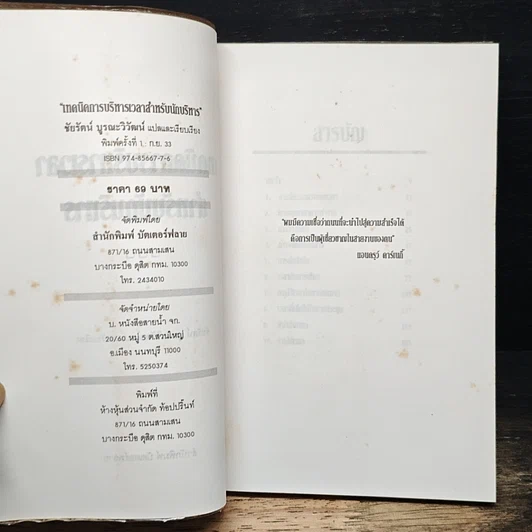 "เทคนิคการบริหารเวลาสำหรับนักบริหาร"
ชัยรัตน์ บูรณะวิวัฒน์ แปลและเรียบเรียง
พิมพ์ครั้งที่ 1 : ก.ย. 33
ISBN 974-85667-7-6
ราคา 69 บาท
จัดพิมพ์โดย
สำนักพิมพ์ บัตเตอร์ฟลาย
871/16 ถนนสามเสน
บางกระบือ ดุสิต กทม. 10300
โทร. 2434010
จัดจำหน่ายโดย
บ. หนังสือสายน้ำ จก.
20/60 หมู่ 5 ต.สวนใหญ่
อ.เมือง นนทบุรี 11000
โทร. 5250374
พิมพ์ที่
ห้างหุ้นส่วนจำกัด ท้อปปริ๊นท์
871/16 ถนนสามเสน
บางกระบือ ดุสิต กทม. 10300
"ผมมีความเชื่อว่าถนนที่จะนำไปสู่ความสำเร็จได้
คือการเป็นผู้เชี่ยวชาญในสายงานของตน"
แอนดรูว์ คาร์เนกี้
สารบัญ